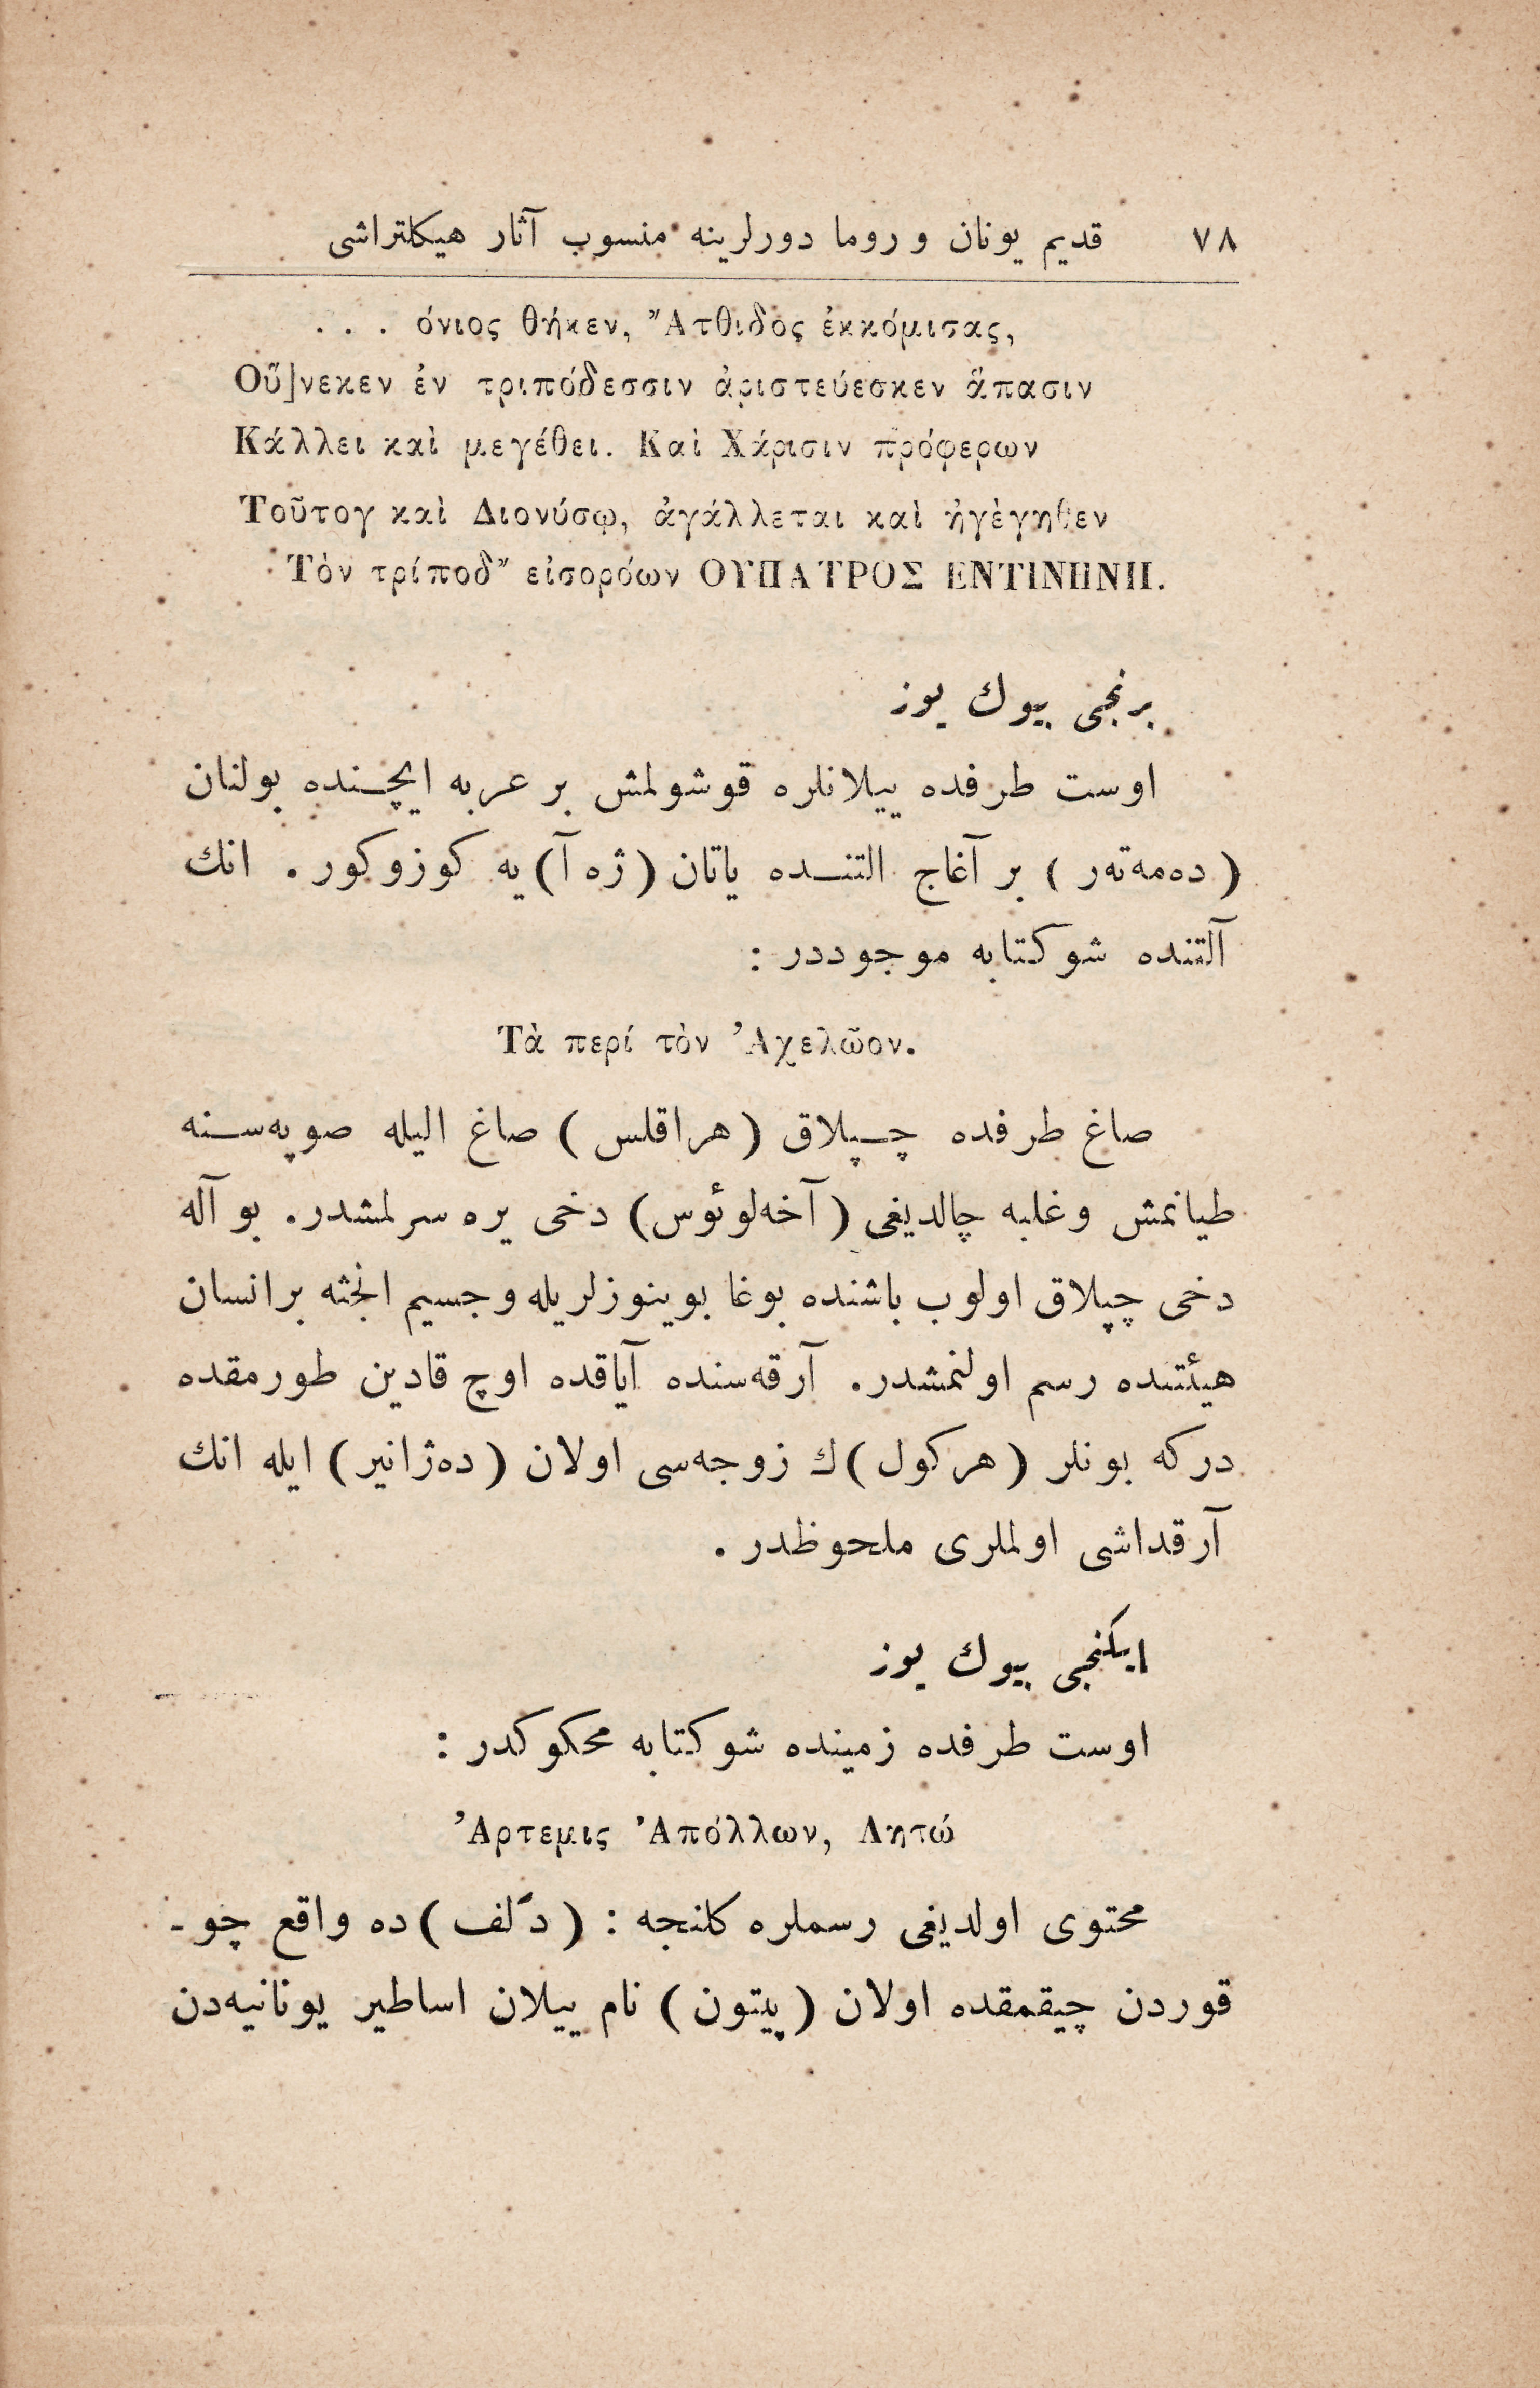 ٧٨ قديم يونان و روما دورلرينه منسوب آثار هيكلتراشى
. . . όνιος θήκεν, ῎Ατθιδος ἐκκόμισας,
Οὕ]νεκεν ἐν τριπόδεσσιν ἀριστεύεσκεν ἅπασιν
Κάλλει καὶ μεγέθει. Καὶ Χάρισιν πρόφερων
Τοῦτογ καὶ Διονύσῳ, ἀγάλλεται καὶ ἠγὲγηθεν
Τὸν τρίποδ῎ εἰσορόων ΟΥΠΑΤΡΟΣ ΕΝΤΙΝΗΝΗ.
برنجى بيوك يوز
اوست طرفده ييلانلره قوشولمش بر عربه ايچنده بولنان
(دەمەتەر) بر آغاج التنده ياتان (ژه آ)يه كوزوكور. انك
آلتنده شو كتابه موجوددر :
Τὰ περί τὸν ᾿Αχελῶον.
صاغ طرفده چپلاق (هراقلس) صاغ اليله صوپه‌سنه
طيانمش وغلبه چالديغى (آخه‌لوئوس) دخى يره سرلمشدر. بو آله
دخى چپلاق اولوب باشنده بوغا بوينوزلريله وجسيم الجثه برانسان
هيئتنده رسم اولنمشدر. آرقه‌سنده آياقده اوچ قادين طورمقده
دركه بونلر (هركول)ك زوجه‌سى اولان (دەژانير) ايله انك
آرقداشى اولملرى ملحوظدر.
ايكنجى بيوك يوز
اوست طرفده زمينده شو كتابه محكوكدر :
᾿Αρτεμις ᾿Απόλλων, Λητώ
محتوى اولديغى رسملره كلنجه : (دلف)ده واقع چو -
قوردن چيقمقده اولان (پيتون) نام ييلان اساطير يونانيه‌دن